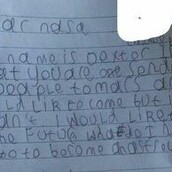 ear nasa
name is Dextor
at you are one send
people to mars a
ld like to come but I
an't I would like t
he future what do I h
to to become an astro